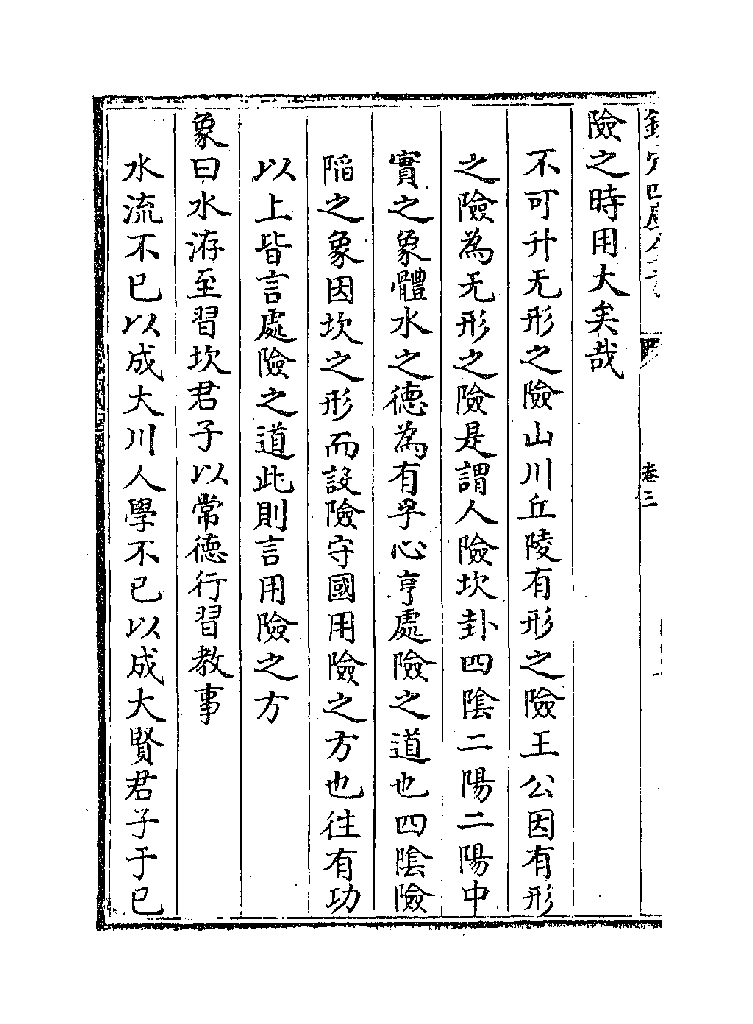 卷三
險之時用大矣哉
不可升无形之險山川丘陵有形之險王公因有形
之險為无形之險是謂人險坎卦四陰二陽二陽中
實之象體水之德為有孚心亨處險之道也四陰險
陷之象因坎之形而設險守國用險之方也往有功
以上皆言處險之道此則言用險之方
象曰水洊至習坎君子以常德行習教事
水流不已以成大川人學不已以成大賢君子于已